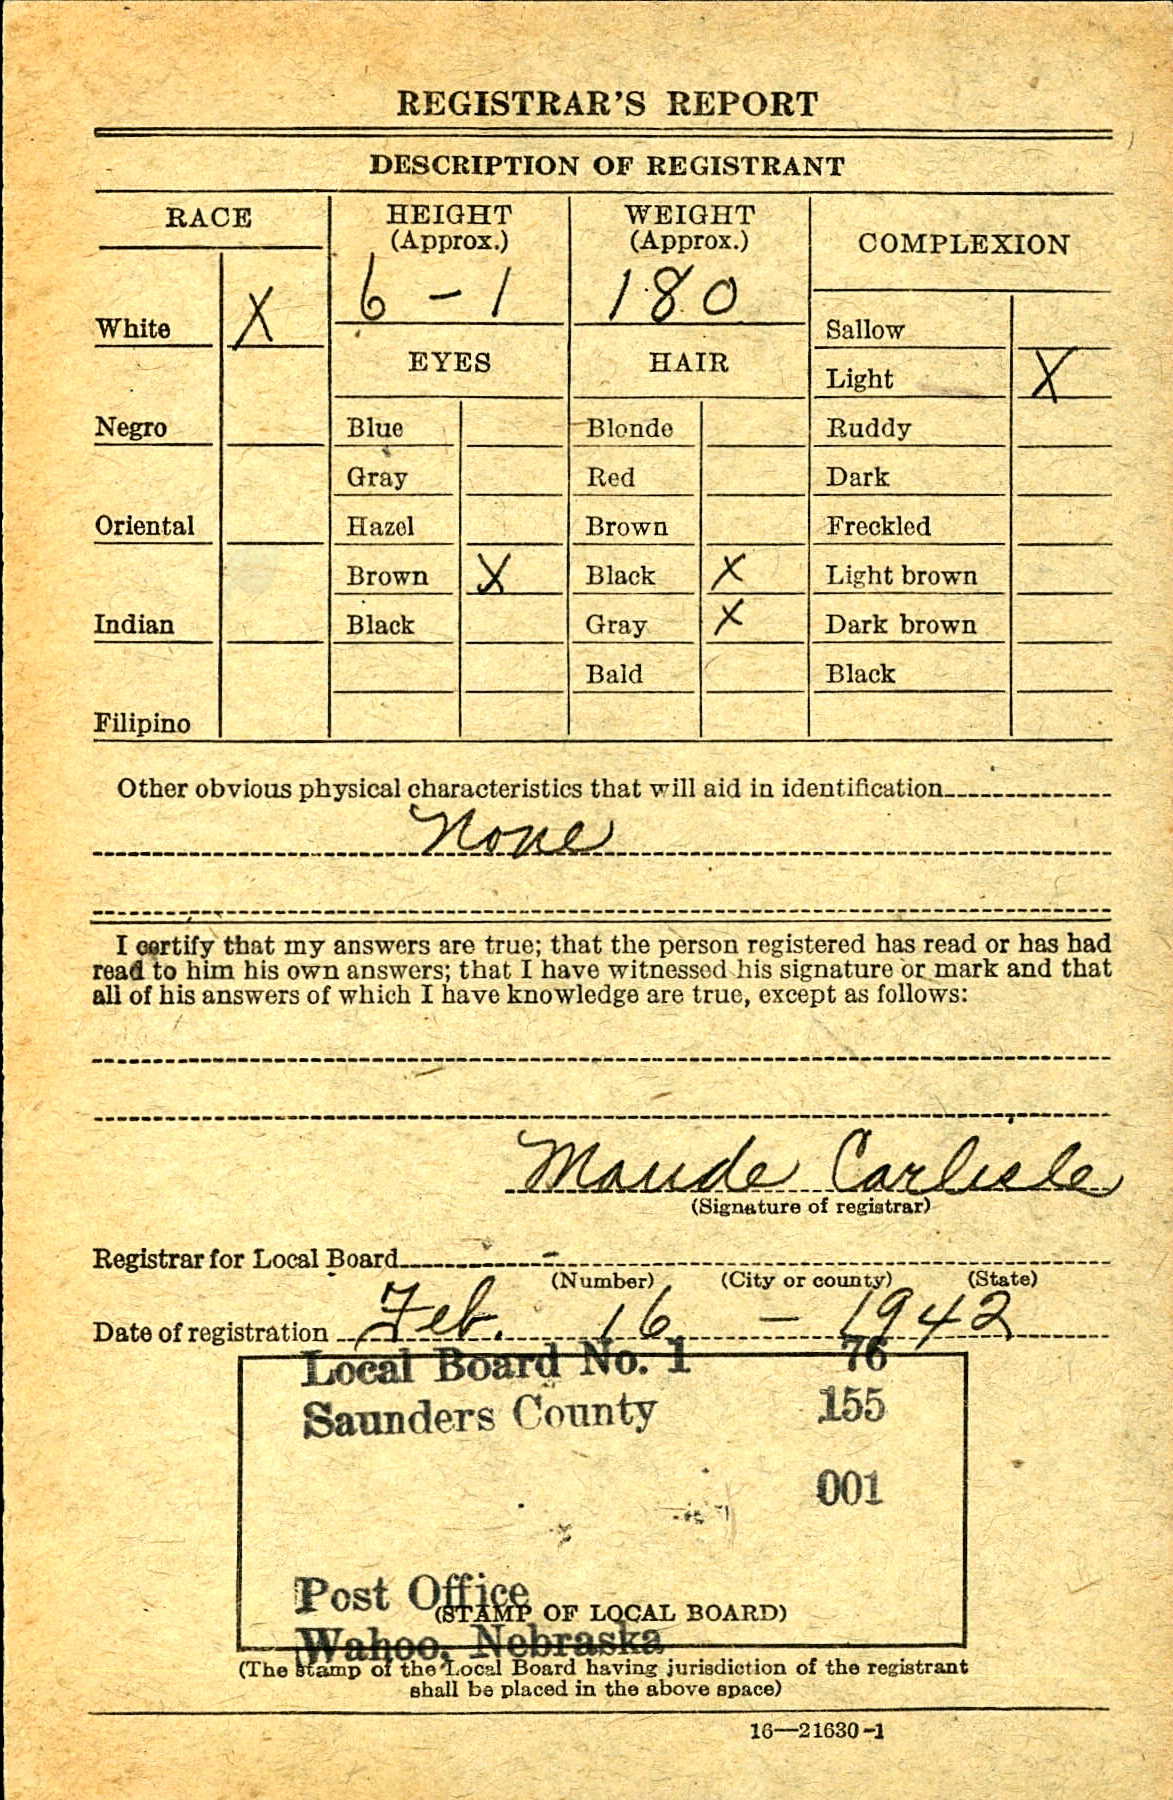 REGISTRAR'S REPORT
DESCRIPTION OF REGISTRANT
RACE
HEIGHT
(Approx.)
WEIGHT
(Approx.)
COMPLEXION
6 - 1
180
White X
Sallow
EYES
HAIR
Light X
Negro
Blue
Blonde
Ruddy
Gray
Red
Dark
Oriental
Hazel
Brown
Freckled
Brown X
Black X
Light brown
Indian
Black
Gray X
Dark brown
Bald
Black
Filipino
Other obvious physical characteristics that will aid in identification
None
I certify that my answers are true; that the person registered has read or has had
read to him his own answers; that I have witnessed his signature or mark and that
all of his answers of which I have knowledge are true, except as follows:
Maude Carlisle
(Signature of registrar)
Registrar for Local Board -
(Number) (City or county) (State)
Date of registration Feb. 16 - 1942
Local Board No. 1 76
Saunders County 155
001
Post Office
(STAMP OF LOCAL BOARD)
Wahoo, Nebraska
(The stamp of the Local Board having jurisdiction of the registrant
shall be placed in the above space)
16—21630-1